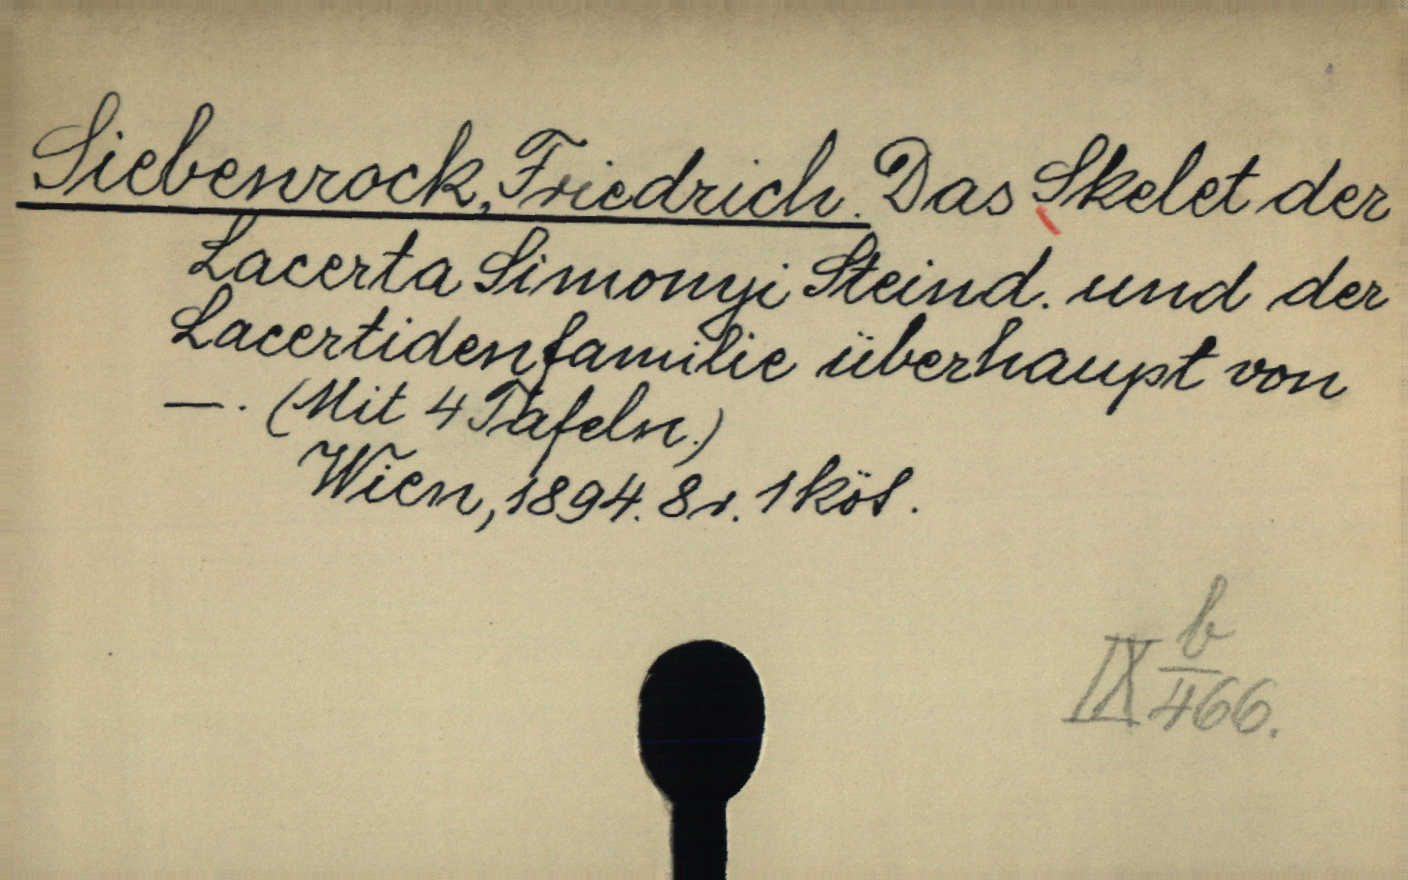 Siebenrock, Friedrich. Das Skelet der
Lacerta Simonyi Steind. und der
Lacertidenfamilie überhaupt von
—. (Mit 4 Tafeln.)
Wien, 1894. 8r. 1 köt.
IX b/466.